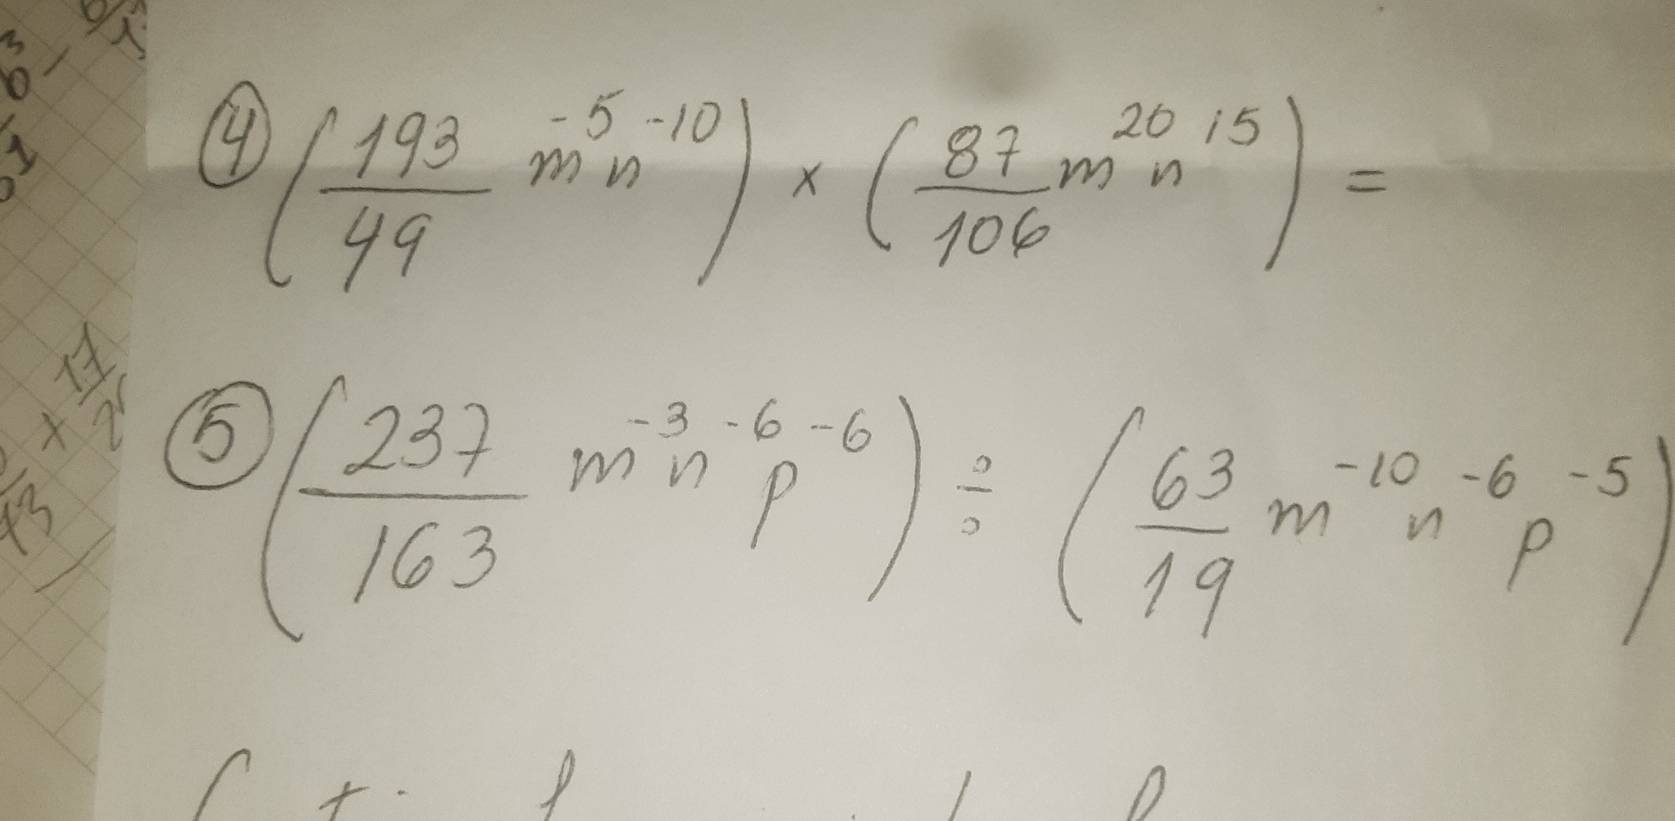 ④ (193/49 m⁻⁵ n⁻¹⁰) × (87/106 m²⁰ n¹⁵) =
⑤ (237/163 m⁻³ n⁻⁶ p⁻⁶) ÷ (63/19 m⁻¹⁰ n⁻⁶ p⁻⁵)
× 17